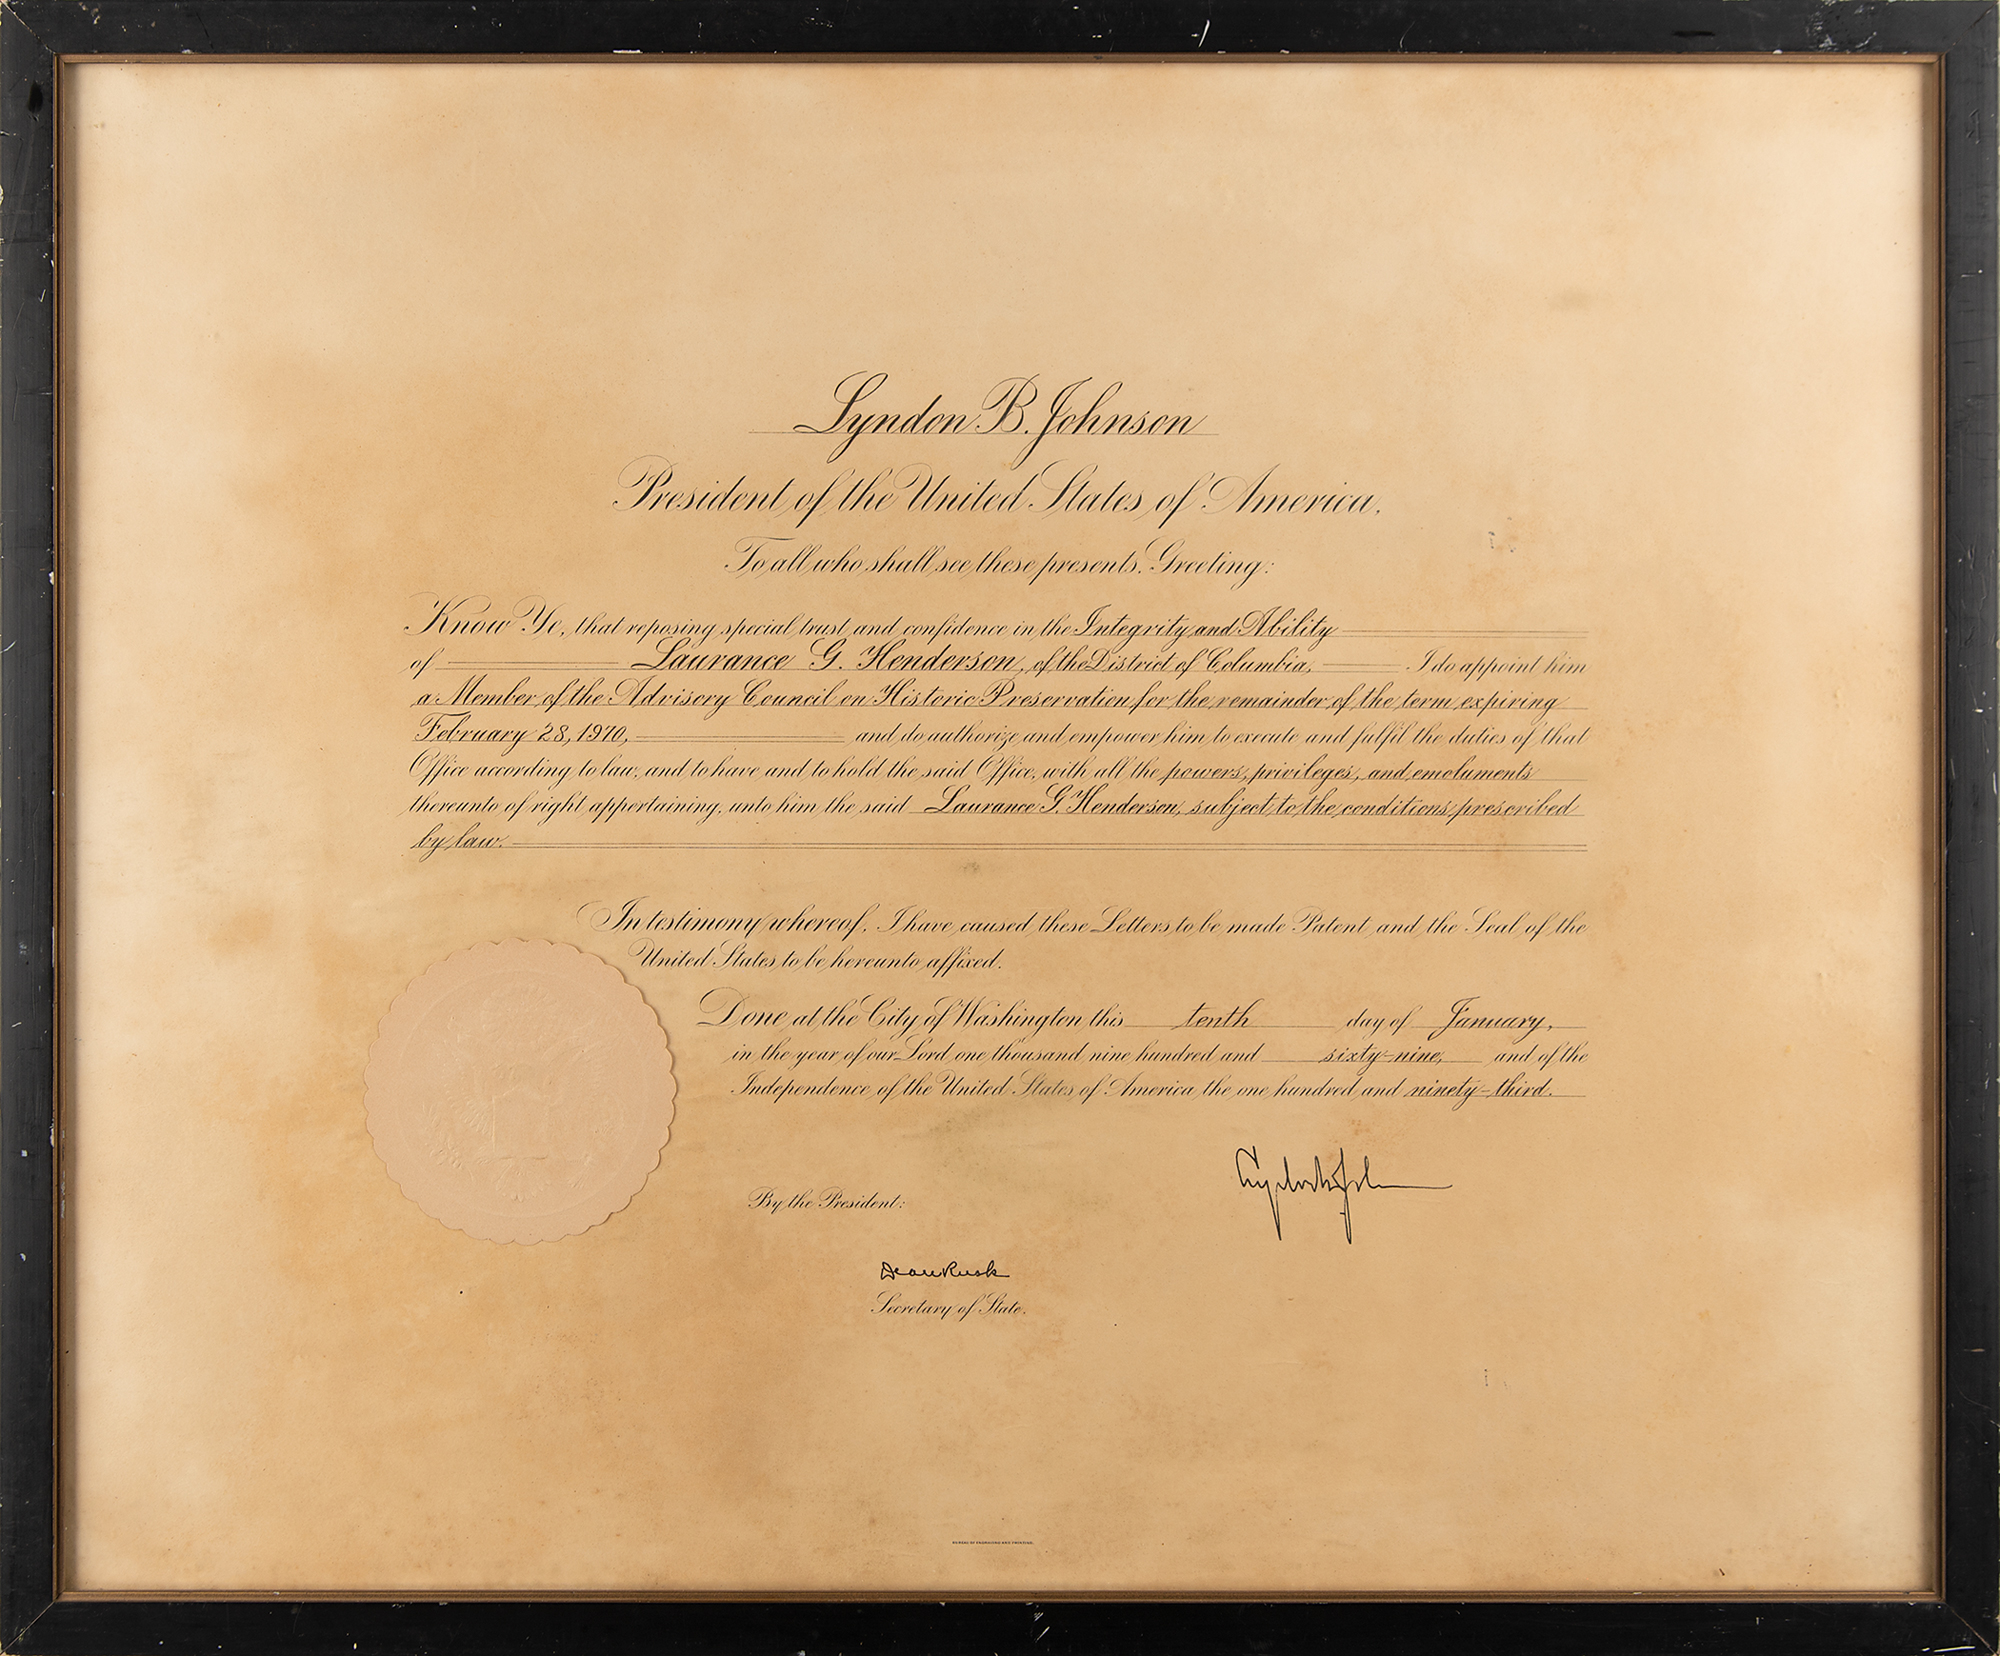 Lyndon B. Johnson
President of the United States of America.
To all who shall see these presents, Greeting:
Know Ye, that reposing special trust and confidence in the Integrity and Ability
of Laurance G. Henderson, of the District of Columbia, I do appoint him
a Member of the Advisory Council on Historic Preservation for the remainder of the term expiring
February 28, 1970, and do authorize and empower him to execute and fulfil the duties of that
Office according to law, and to have and to hold the said Office, with all the powers, privileges, and emoluments
thereunto of right appertaining, unto him the said Laurance G. Henderson, subject to the conditions prescribed
by law.
In testimony whereof, I have caused these Letters to be made Patent and the Seal of the
United States to be hereunto affixed.
Done at the City of Washington this tenth day of January,
in the year of our Lord one thousand nine hundred and sixty-nine, and of the
Independence of the United States of America the one hundred and ninety-third.
By the President:
Dean Rusk
Secretary of State.
BUREAU OF ENGRAVING AND PRINTING.